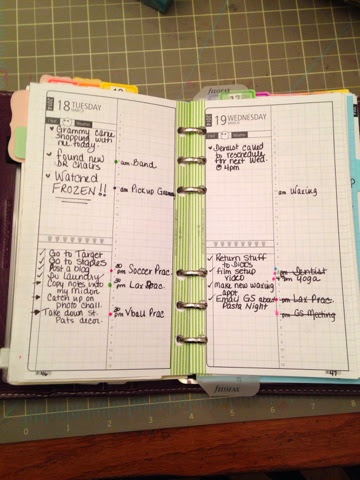 18 TUESDAY
♥ Grammy came
shopping with
me today.
♥ found new
DR chairs
♥ Watched
FROZEN!!
am Band
am Pick up
✓ Go to Target
✓ Go to Staples
✓ Post a blog
✓ Do laundry
Copy notes into
my midori
Catch up on
photo chall.
Take down St.
Pats decor.
pm Soccer Prac.
30 pm Lax Prac.
30 pm Vball Prac
19 WEDNESDAY
♥ Dentist called
to reschedule
for next Wed.
@ 4pm
am Waxing
✓ Return Stuff
to Dicks
✓ film setup
video
✓ make new waxing
appt
✓ Email GS about
Pasta Night
pm Dentist
pm Yoga
pm Lax Prac.
pm GS Meeting
FILOFAX
FILOFAX